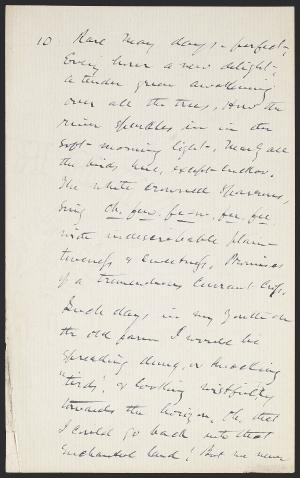 10 Rare May days - perfect,
Every hour a new delight,
a tender green awakening
over all the trees, How the
river sparkles in in the
soft morning light, Nearly all
the birds here, except cuckoo.
The white crowned sparrows,
sing
with indescribable plain-
tiveness & sweetness. Promises
of a tremendous currant crop.
Such days in my youth on
the old farm I would be
spreading dung, or knocking
"turds", & looking wistfully
towards the horizon, Oh, that
I could go back into that
enchanted land! But we never